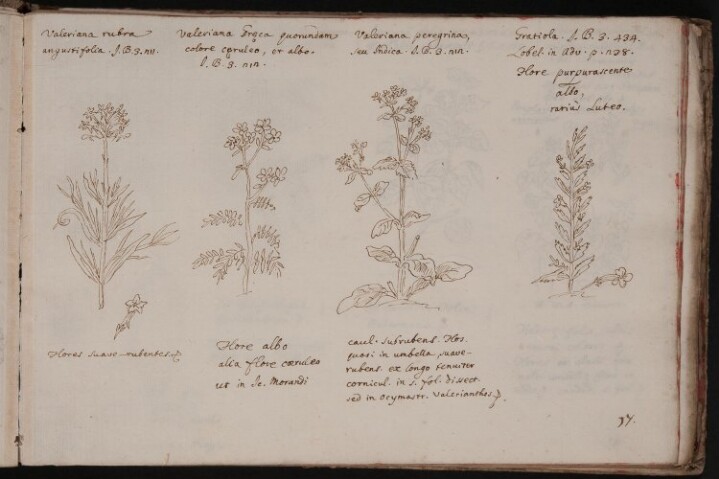 Valeriana rubra
angustifolia. J.B.3.
Valeriana Græca quorundam
colore cæruleo, et albo.
J.B.3.
Valeriana peregrina,
seu Indica. J.B.3.
Gratiola. J.B.3. 434.
Lobel. in Adv. p.
Flore purpurascente
albo,
rariùs Luteo.
Flores suave-rubentes.
Flore albo
alia flore cæruleo
ut in Ic. Morandi
caul. subrubens. Flos.
quasi in umbella, suave-
rubens. ex longo tenuiter
cornicul. in 5. fol. dissect.
sed in Valerianthos.
37.